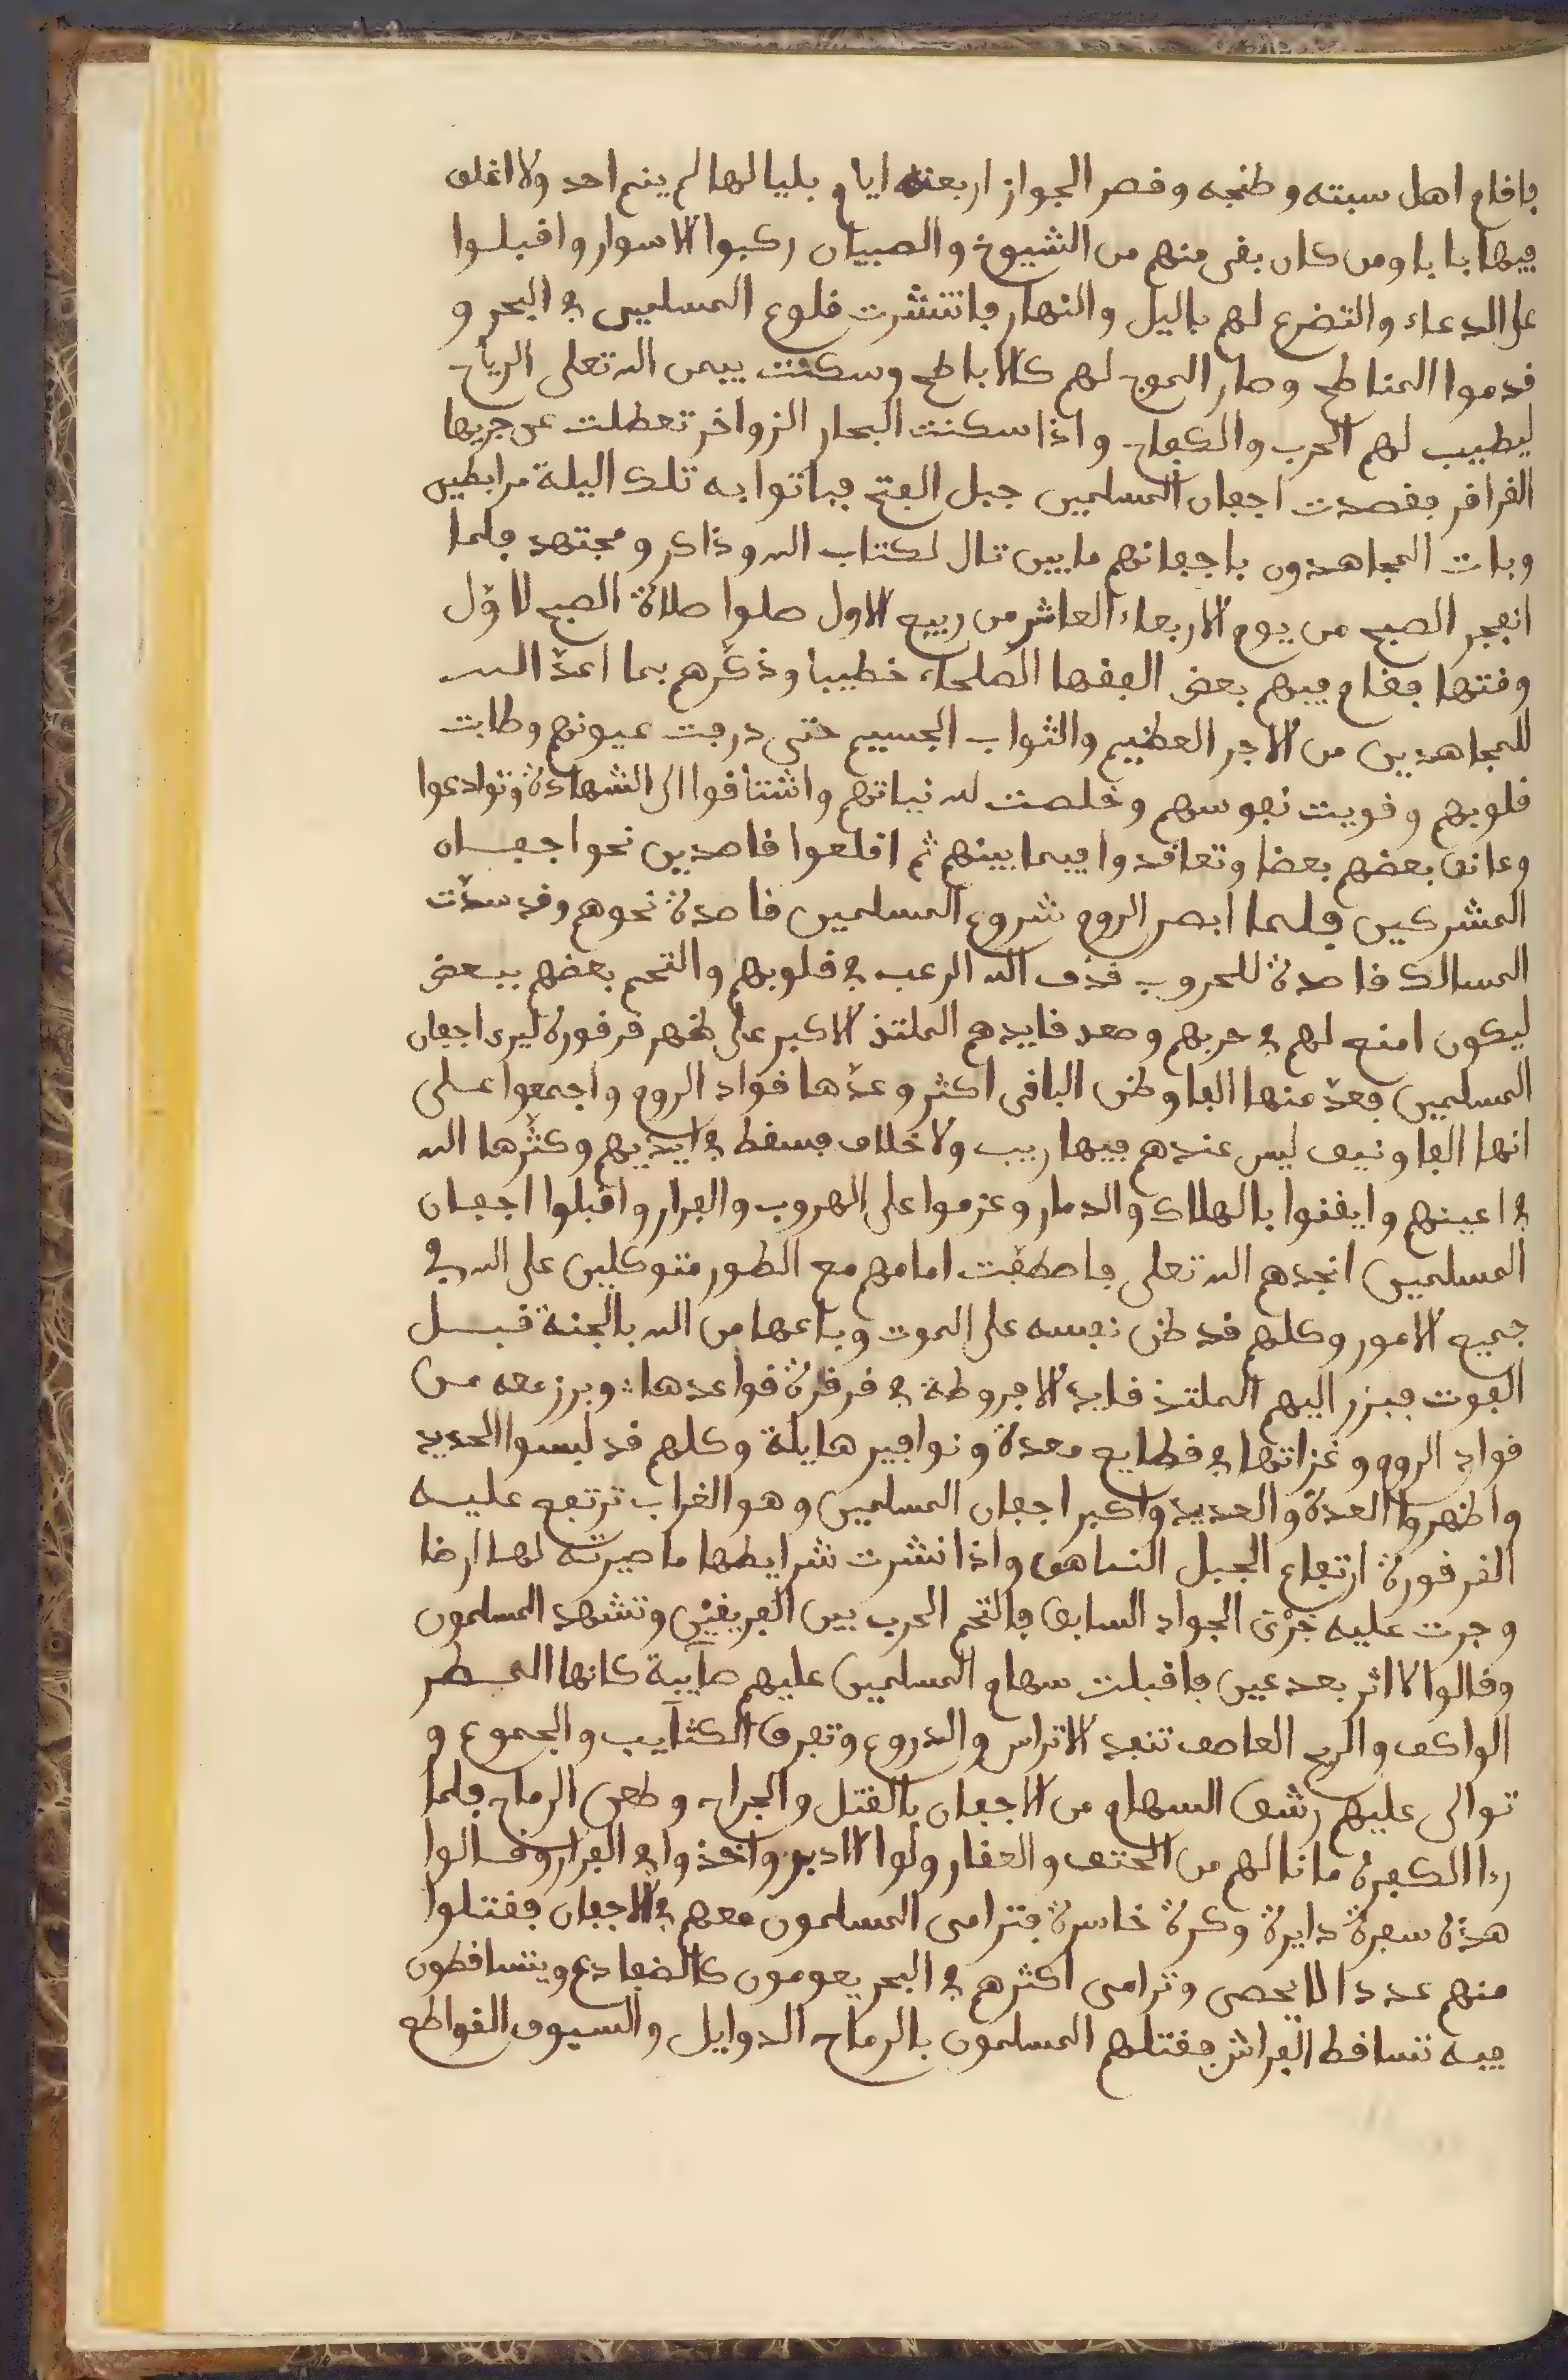 فاقام اهل سبته وطنجه وقصر الجواز اربعة ايام بلياليها لم ينم احد ولا اغلق
فيها بابا ومن كان بقى منهم من الشيوخ والصبيان ركبوا الاسوار واقبلوا
على الدعاء والتضرع لهم باليل والنهار فانتشرت قلوع المسلمين في البحر و
قدموا المناطح وصار الموج لهم كالاباطح وسكنت بيمن الله تعلى الرياح
ليطيب لهم الحرب والكفاح واذا سكنت البحار الزواخر تعطلت عن جريها
القراقر فقصدت اجفان المسلمين جبل الفتح فباتوا به تلك اليلة مرابطين
وبات المجاهدون باجفانهم ما بين تال لكتاب الله وذاكر ومجتهد فلما
انفجر الصبح من يوم الاربعاء العاشر من ربيع الاول صلوا صلاة الصبح لاوّل
وقتها فقام فيهم بعض الفقها الصلحاء خطيبا وذكّرهم بما اعدّ الله
للمجاهدين من الاجر العظيم والثواب الجسيم حتى درفت عيونهم وطابت
قلوبهم وقويت نفوسهم وخلصت لله نياتهم واشتاقوا الى الشهادة وتوادعوا
وعانق بعضهم بعضا وتعاقدوا فيما بينهم ثم اقلعوا قاصدين نحو اجفان
المشركين فلما ابصر الروم شروع المسلمين قاصدة نحوهم وقد سدّت
المسالك قاصدة للحروب قذف الله الرعب في قلوبهم والتحم بعضهم ببعض
ليكون امنع لهم في حربهم وصعد قايدهم الملتذ الاكبر على ظهر قرقورة ليرى اجفان
المسلمين فعدّ منها الفا وظن الباقى اكثر وعدّها قواد الروم واجمعوا على
انها الفا ونيف ليس عندهم فيها ريب ولا خلاف فسقط في ايديهم وكثّرها الله
في اعينهم وايقنوا بالهلاك والدمار وعزموا على الهروب والفرار واقبلوا اجفان
المسلمين انجدهم الله تعلى فاصطفّت امامهم مع الطور متوكلين على الله في
جميع الامور وكلهم قد ظن نفسه على الموت وباعها من الله بالجنة قبل
الفوت فبرز اليهم الملتذ قايد الاجروطة في قرقرة قواعدها وبرز معه من
قواد الروم وغزاتها في قطايع معدة ونوافير هايلة وكلهم قد لبسوا الحديد
واظهروا العدة والعديد واكبر اجفان المسلمين وهو الغراب ترتفع عليه
القرقورة ارتفاع الجبل الشاهق واذا نشرت شرايطها ما صيرته لها ارضا
وجرت عليه جَرْىَ الجواد السابق فالتحم الحرب بين الفريقيْن وتشهد المسلمون
وقالوا لا اثر بعد عين فاقبلت سهام المسلمين عليهم صآيبة كانها المطر
الواكف والريح العاصف تنفد الاتراس والدروع وتفرق الكتآيب والجموع و
توالى عليهم رشق السهام من الاجفان بالقتل والجراح وطعن الرماح فلما
را الكفرة ما نالهم من الحتف والعقار ولوا الادبر واخذوا في الفرار وقالوا
هذه سفرة دايرة وكرة خاسرة فترامى المسلمون معهم في الاجفان فقتلوا
منهم عددا لا يحصى وترامى اكثرهم في البحر يعومون كالضفادع ويتساقطون
فيه تساقط الفراش فقتلهم المسلمون بالرماح الدوابل والسيوف القواطع